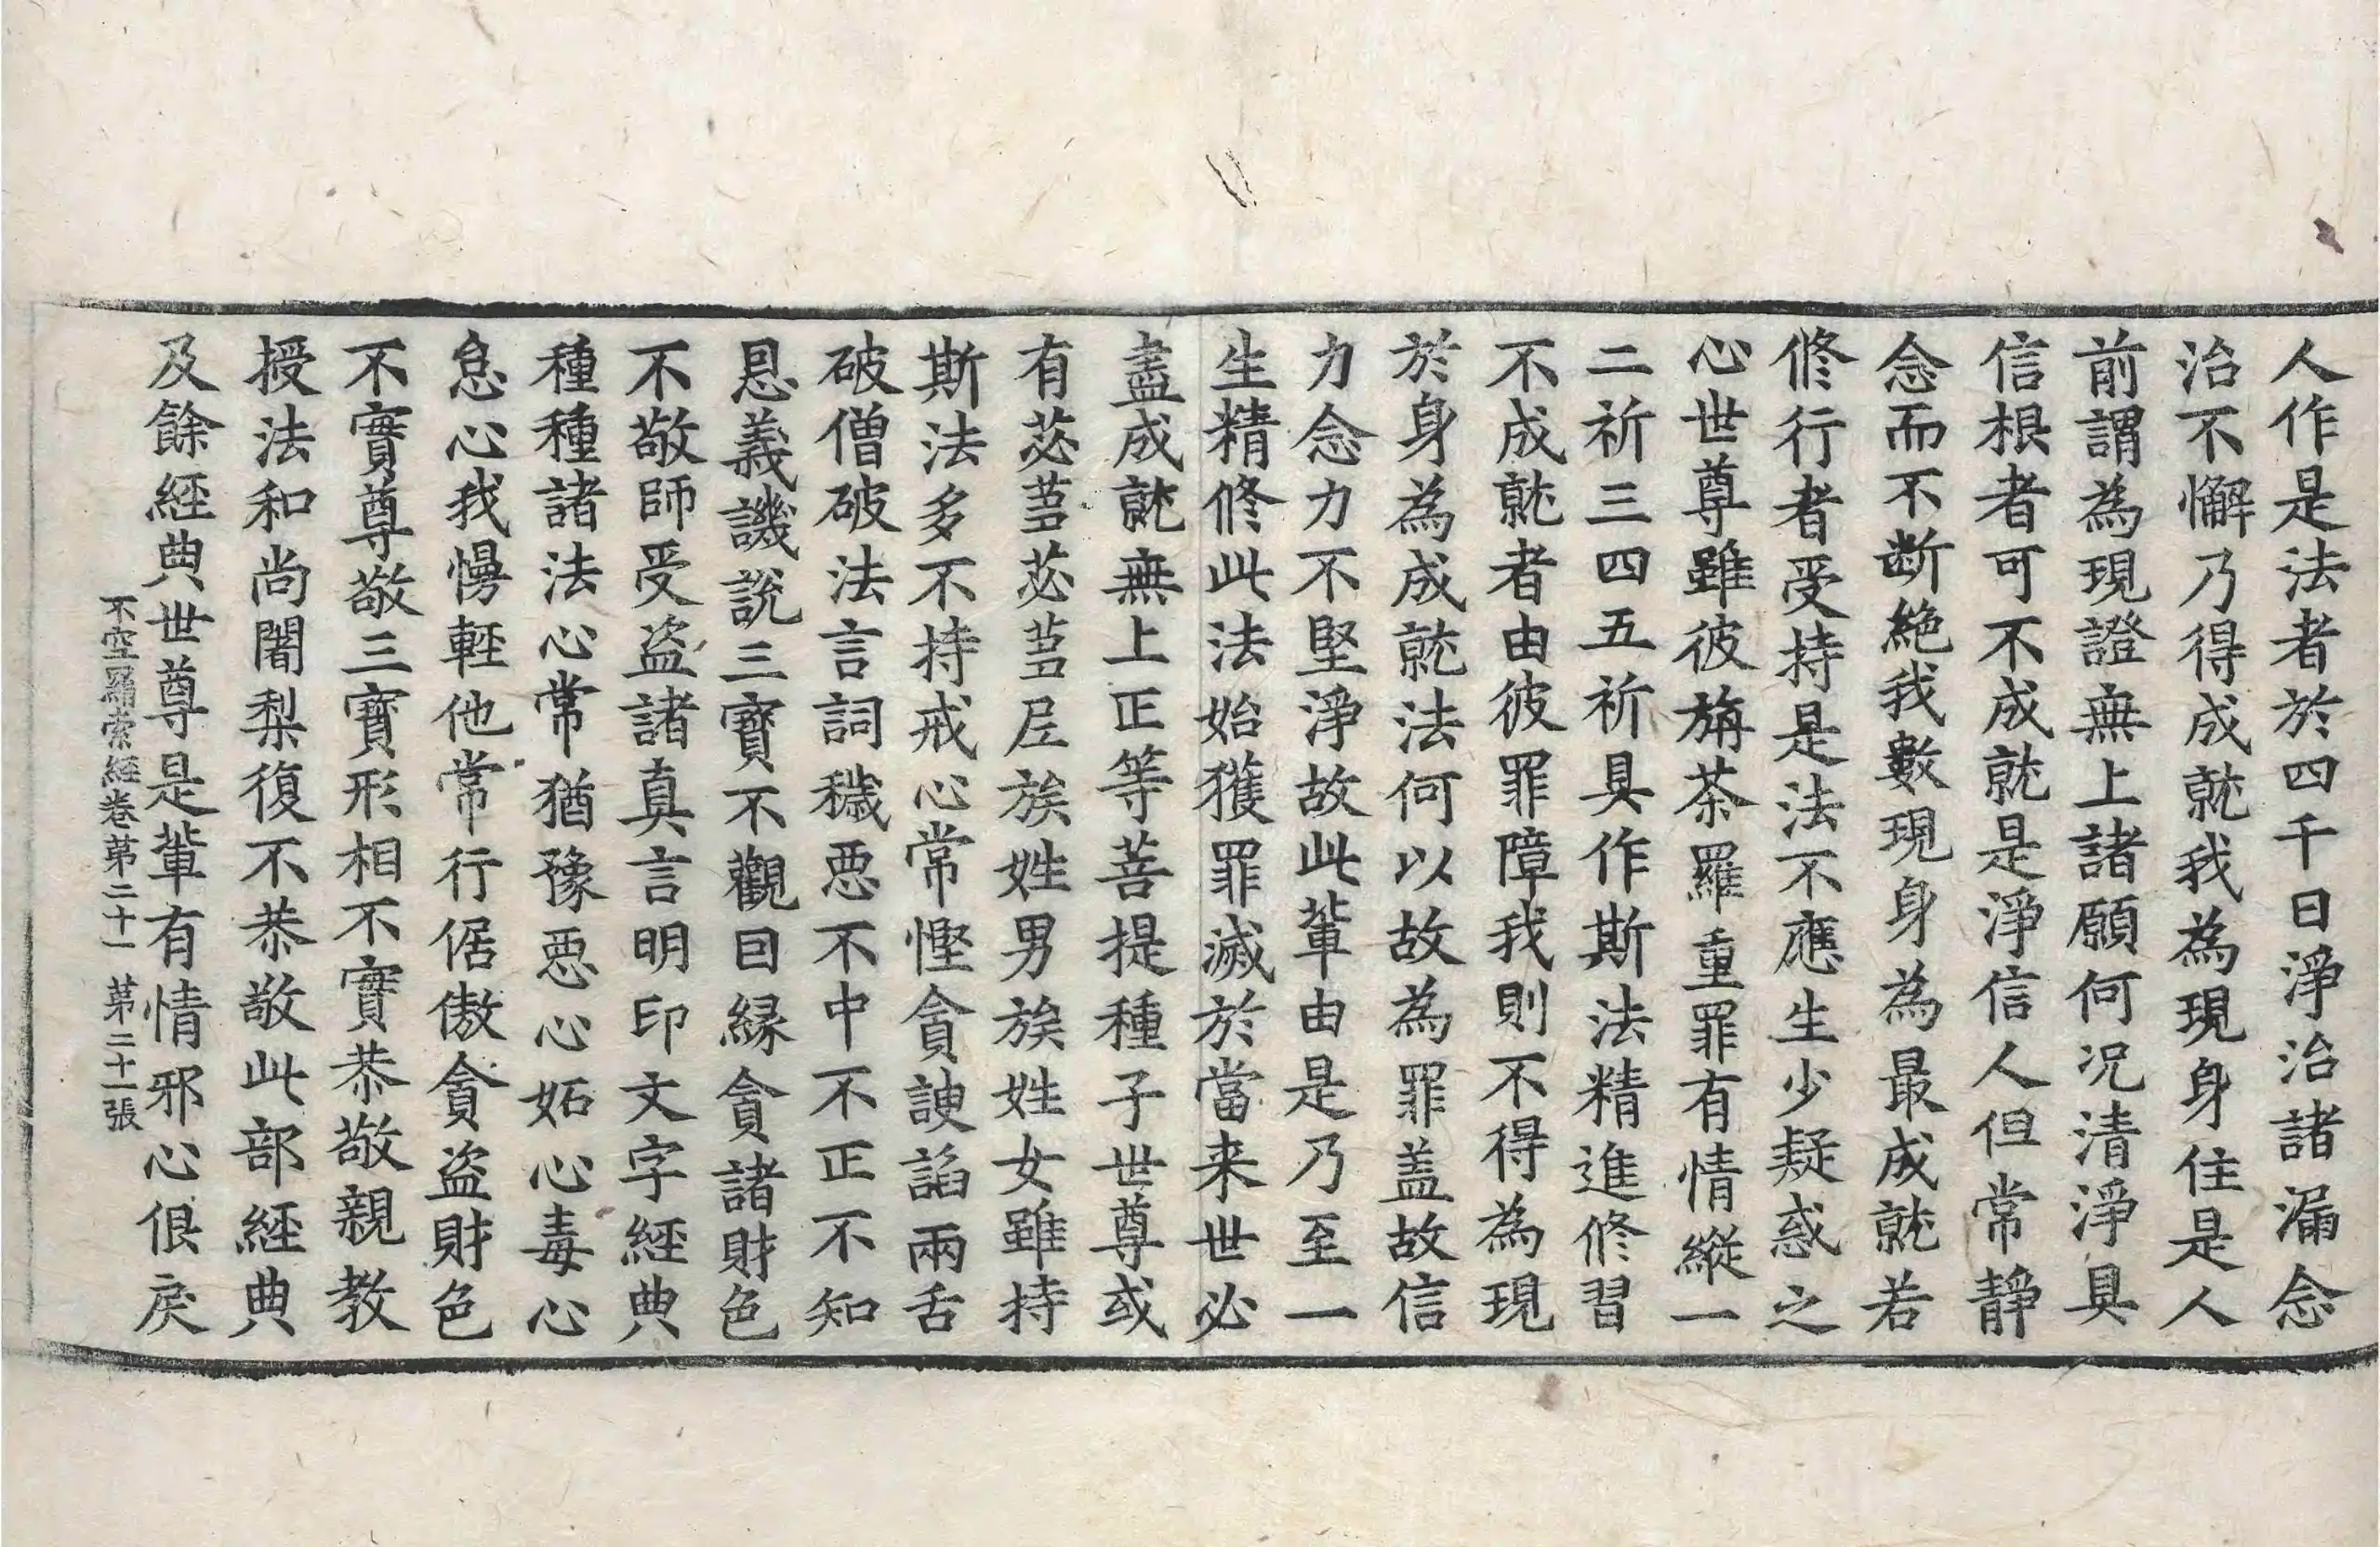 人作是法者於四千日淨治諸漏念
治不懈乃得成就我為現身住是人
前謂為現證無上諸願何况清淨具
信根者可不成就是淨信人但常靜
念而不断絶我數現身為最成就若
修行者受持是法不應生少疑惑之
心世尊雖彼旃荼羅重罪有情縱一
二祈三四五祈具作斯法精進修習
不成就者由彼罪障我則不得為現
於身為成就法何以故為罪盖故信
力念力不堅淨故此輩由是乃至一
生精修此法始獲罪滅於當来世必
盡成就無上正等菩提種子世尊或
有苾蒭苾蒭尼族姓男族姓女雖持
斯法多不持戒心常慳貪諛諂兩舌
破僧破法言詞穢惡不中不正不知
恩義譏說三寶不觀因緣貪諸財色
不敬師受盗諸真言明印文字經典
種種諸法心常猶豫惡心妬心毒心
怠心我慢輕他常行倨傲貪盗財色
不實尊敬三寶形相不實恭敬親教
授法和尚闍梨復不恭敬此部經典
及餘經典世尊是輩有情邪心佷戾
不空羂索經卷苐二十一 苐二十一張